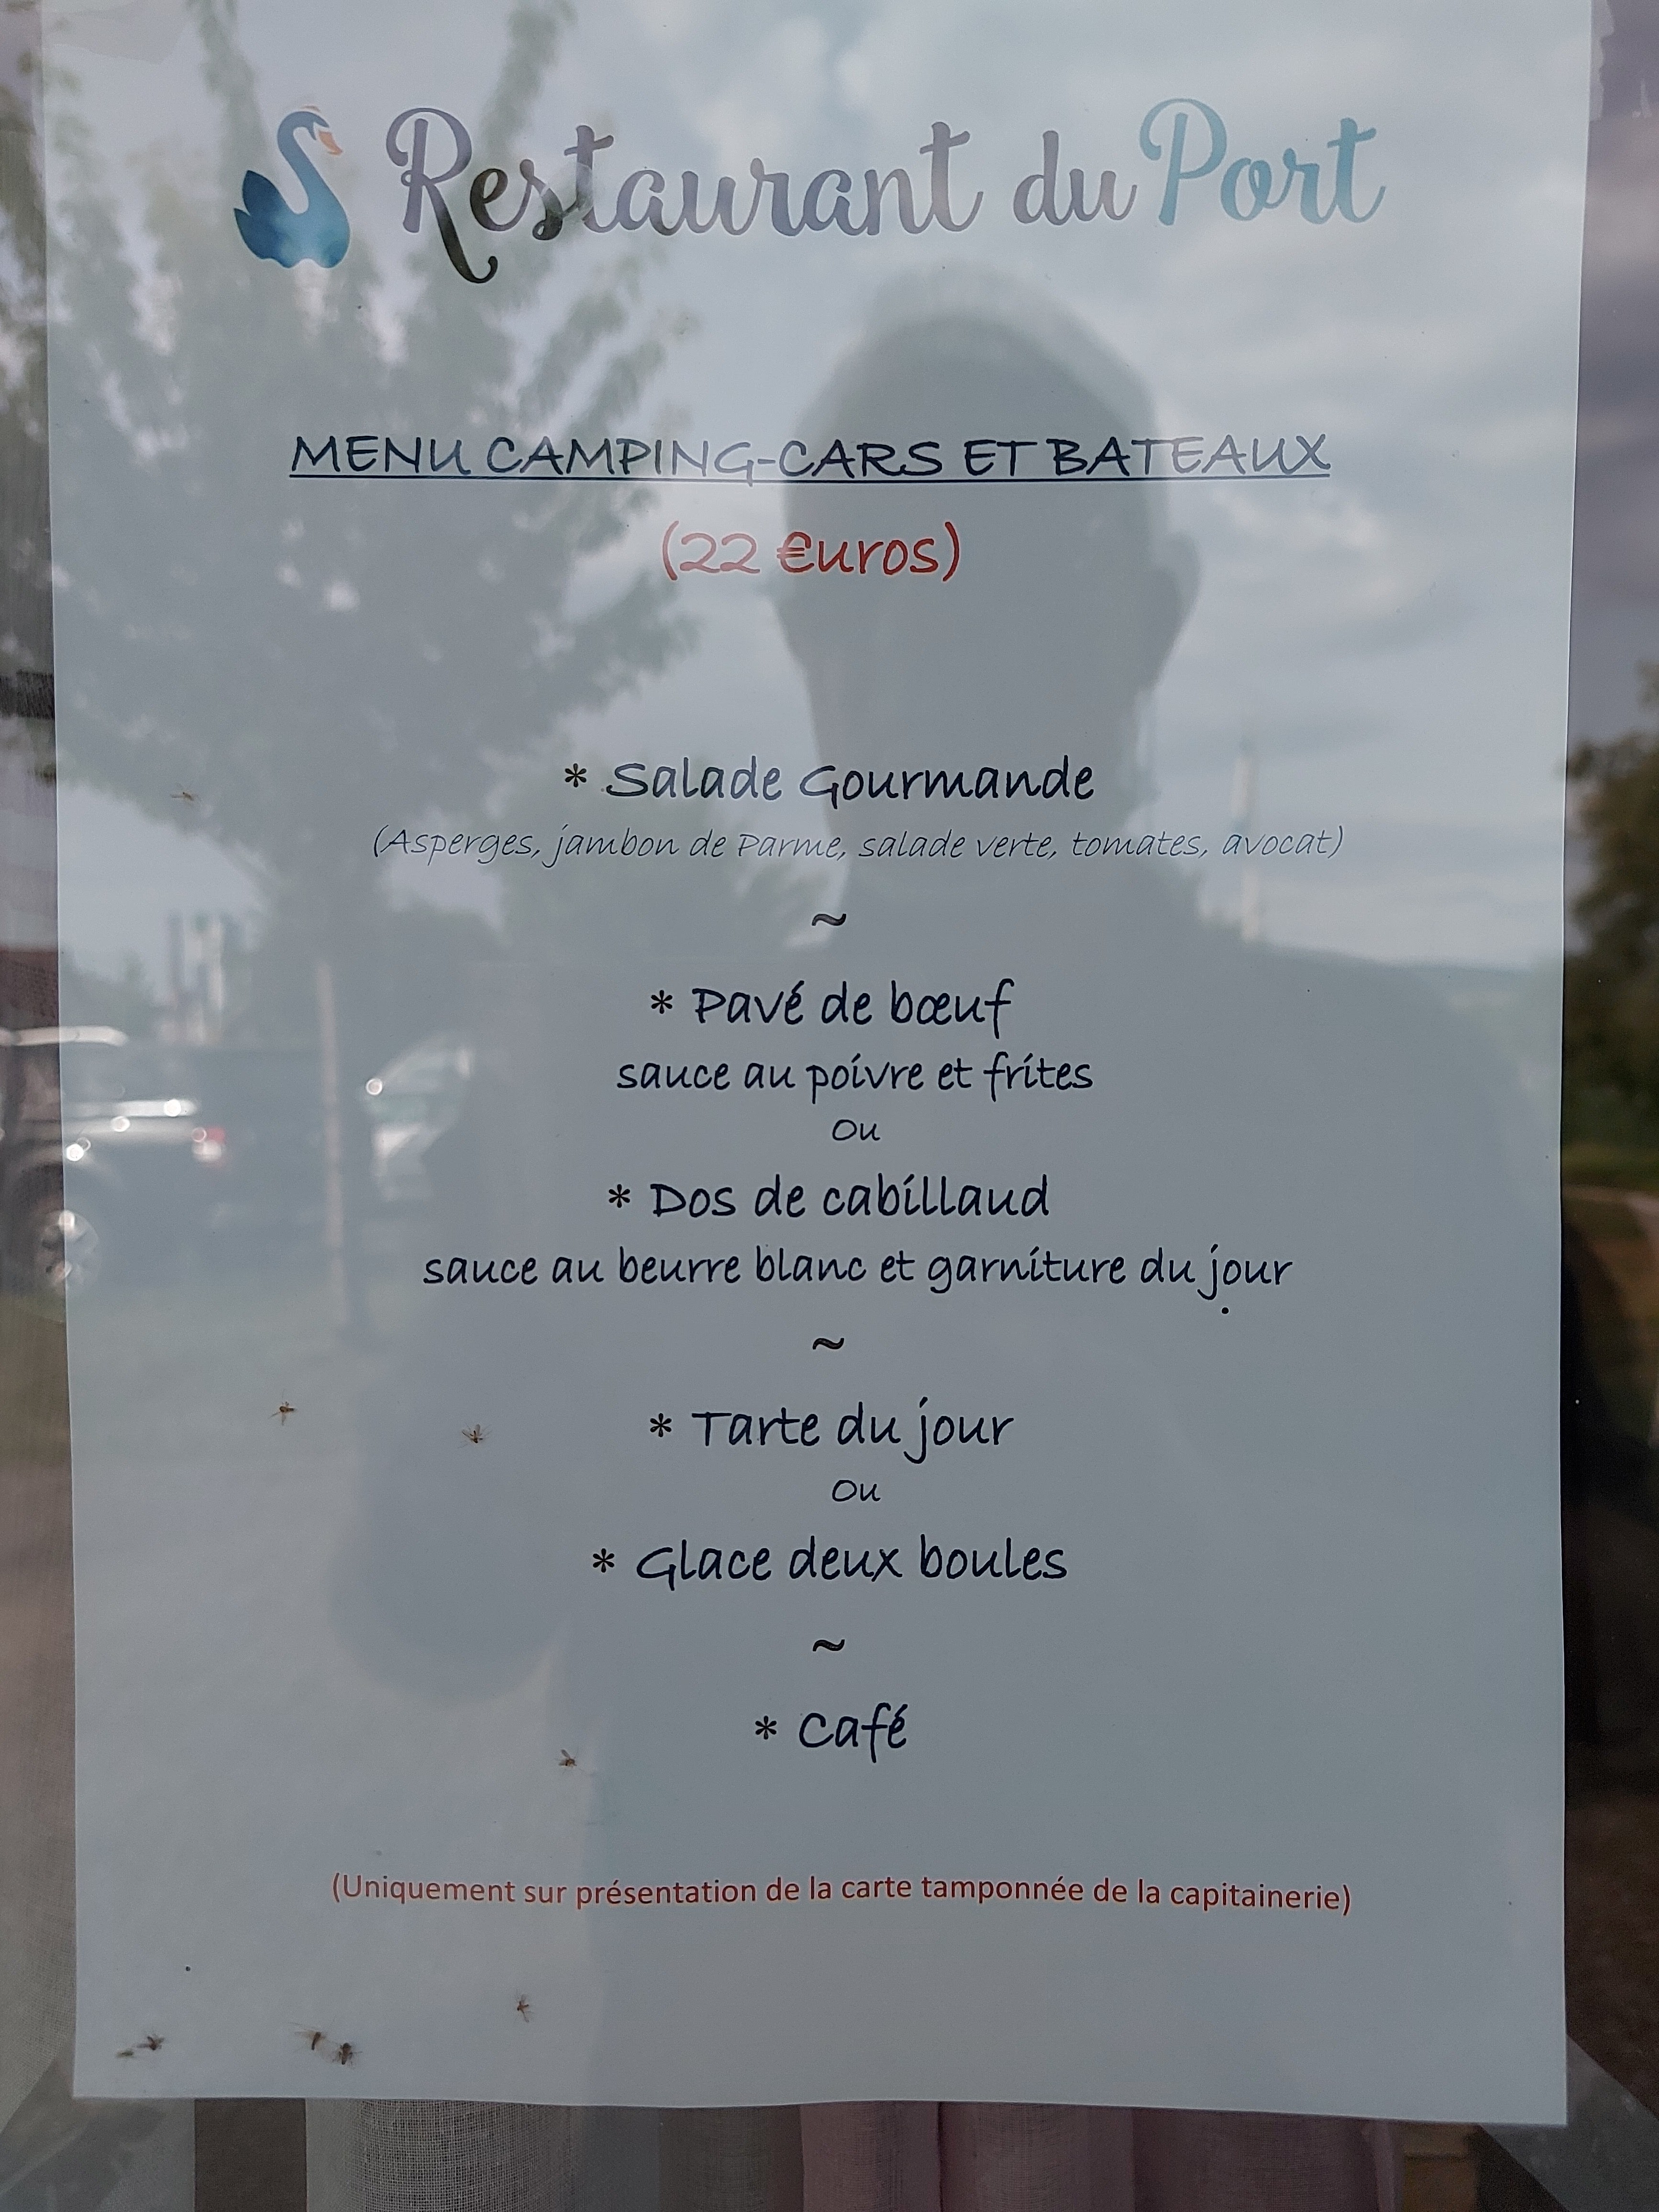 Restaurant du Port
MENU CAMPING-CARS ET BATEAUX
(22 €uros)
* Salade Gourmande
(Asperges, jambon de Parme, salade verte, tomates, avocat)
~
* Pavé de bœuf
sauce au poivre et frites
Ou
* Dos de cabillaud
sauce au beurre blanc et garniture du jour
~
* Tarte du jour
Ou
* Glace deux boules
~
* Café
(Uniquement sur présentation de la carte tamponnée de la capitainerie)